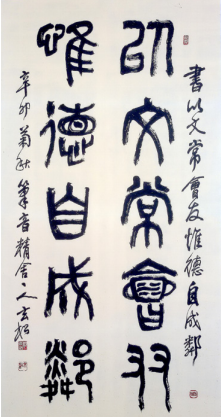 書以文常會友惟德自成鄰
以文常會友
惟德自成鄰
辛卯菊秋筆音精舍人玄